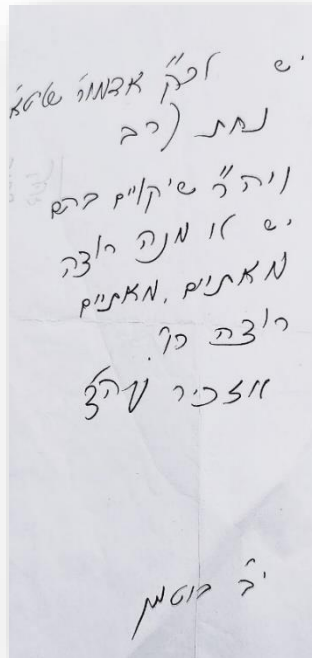 יש לכ"ק אדמו"ר שליט"א
נחת רב
ויה"ר שיקויים בהם
יש לו מנה רוצה
מאתים, מאתיים
רוצה כו'.
אזכיר עה"צ
י"ב